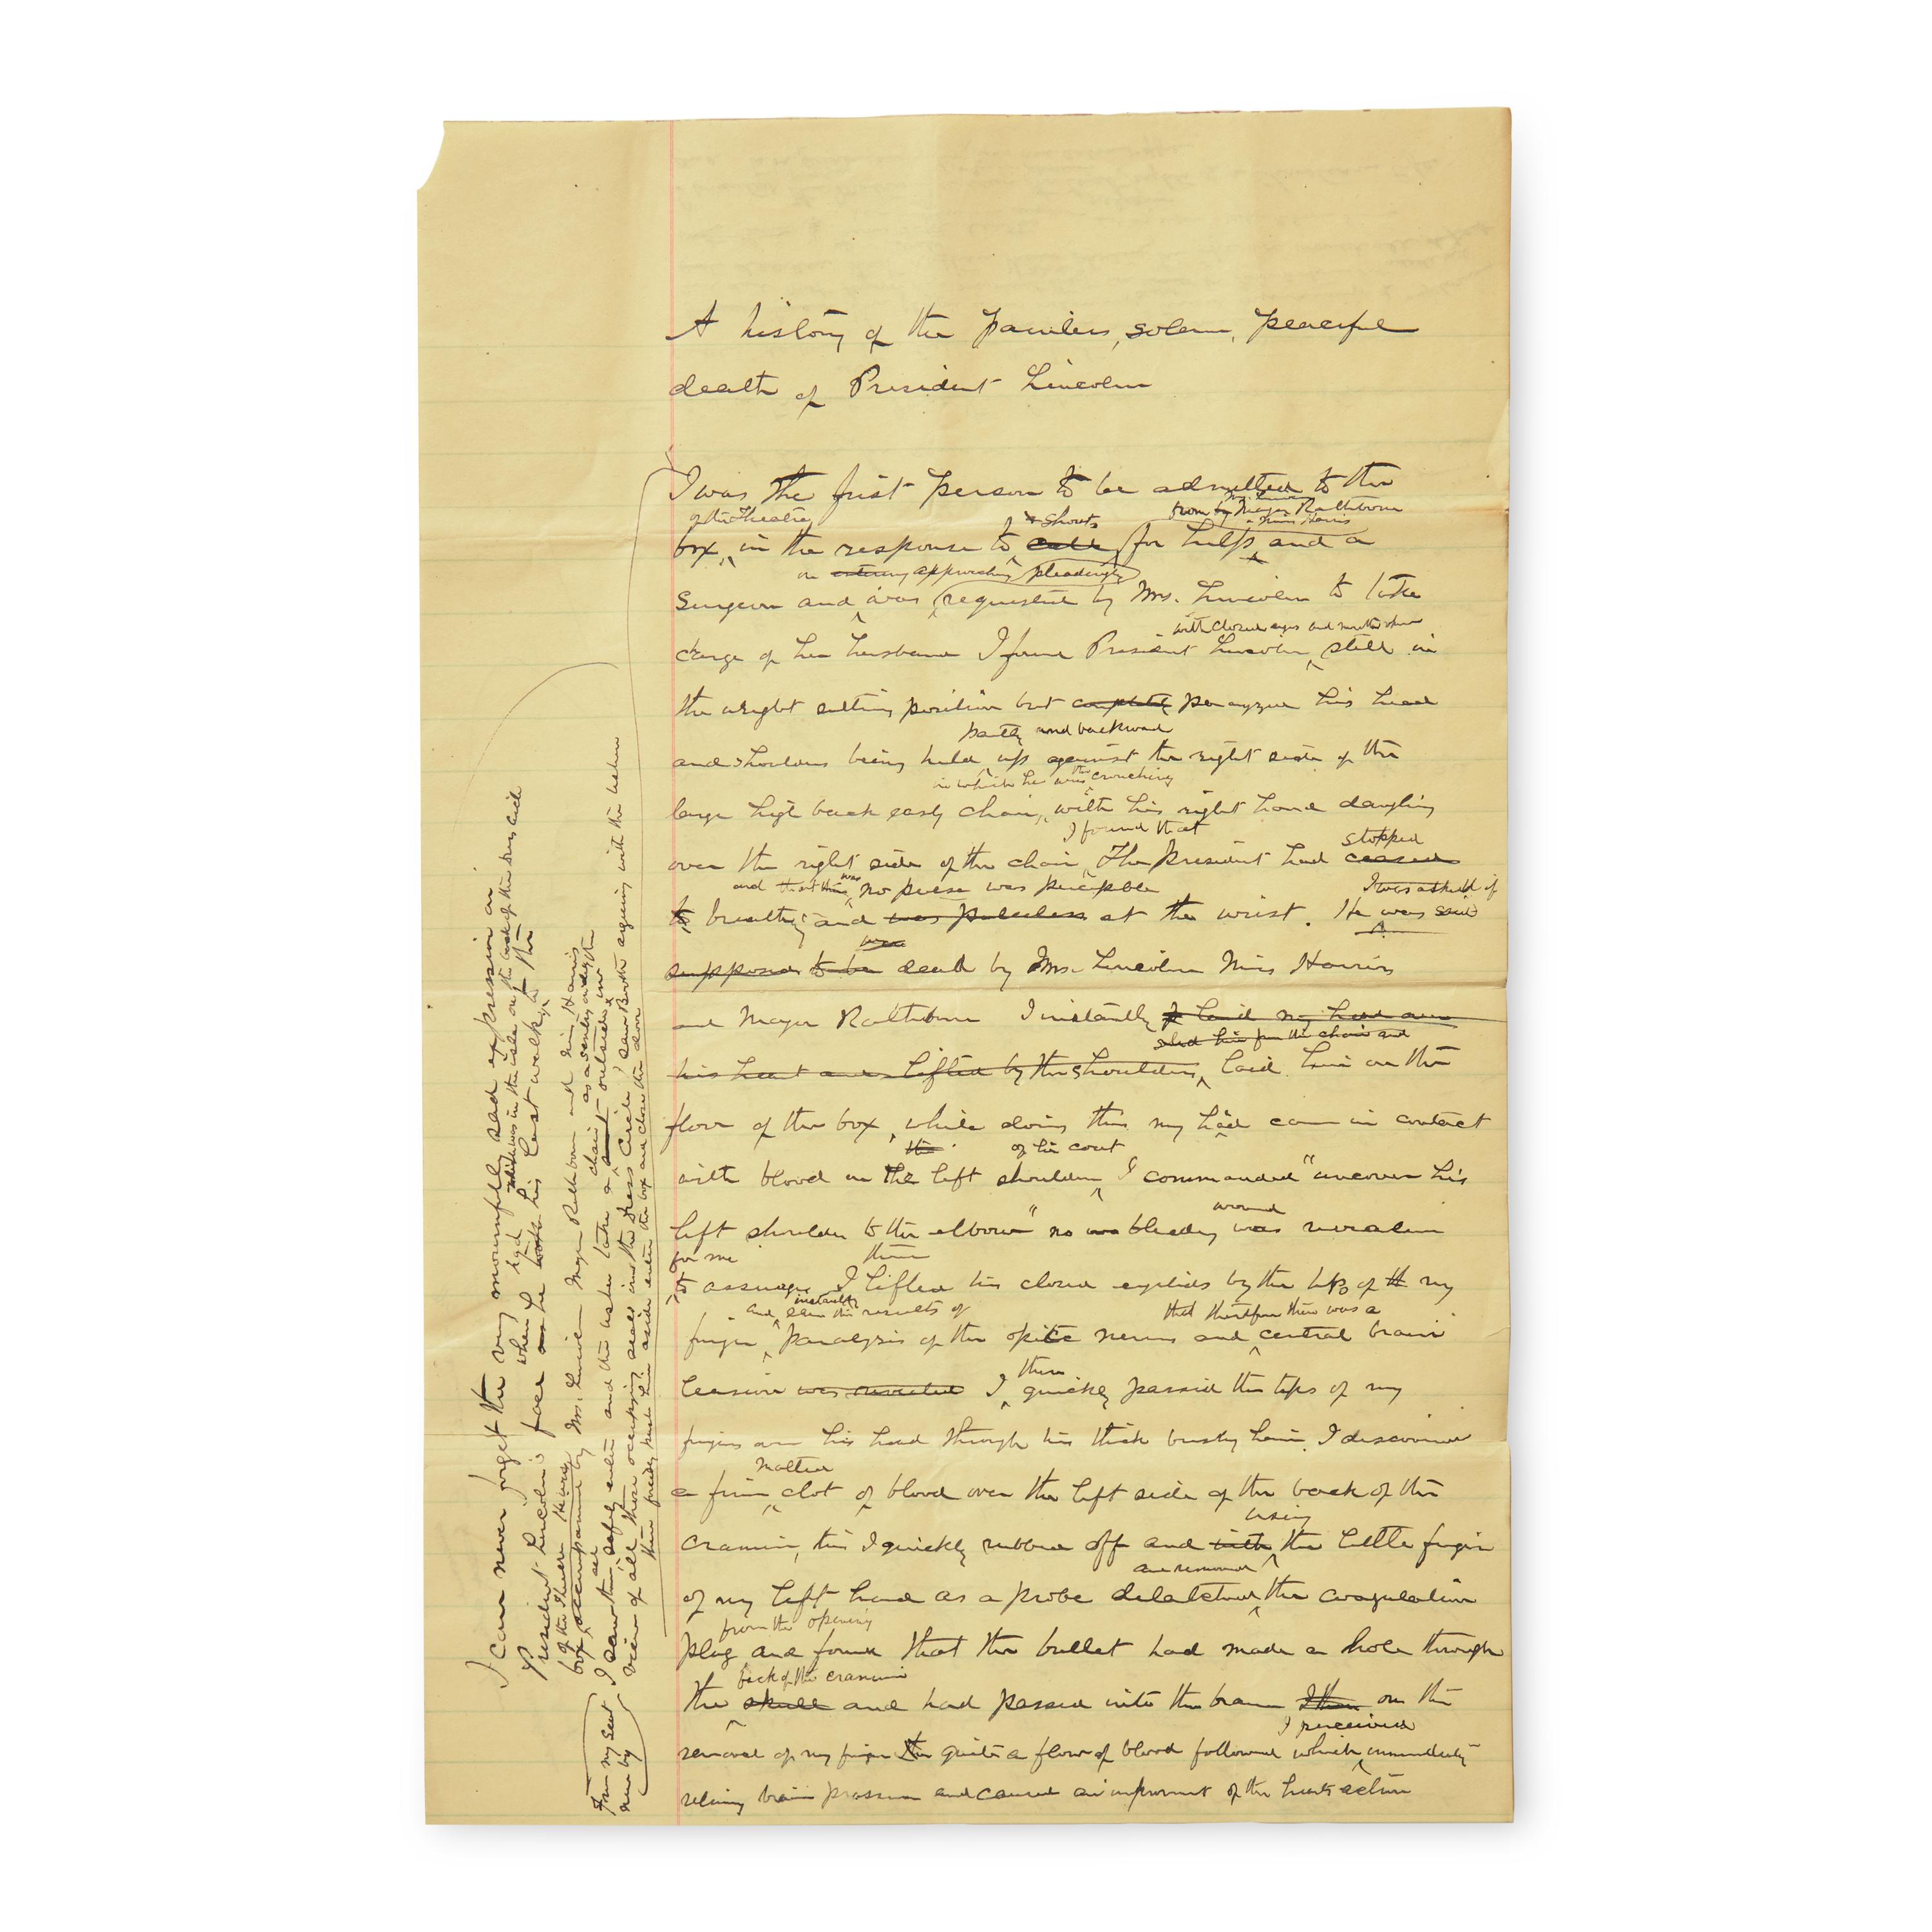 A history of the painless, solem, peaceful
death of President Lincoln
I was the first person to be admitted to the
of the Theatre
shouts
from by Major Rathbone
Miss Harris
box, in the response to calls for help and a
on entering approaching pleadingly
Surgeon and was requested by Mrs. Lincoln to take
with closed eyes and mouth open
charge of her husband I found President Lincoln still in
the upright sitting position but completely paralyzed his head
partly and backward
and shoulders being held up against the right side of the
in which he was then crouching
large high back easy chair, with his right hand dangling
I found that
stopped
over the right side of the chair, The President had ceased
and that there was no pulse was perceptible
I was asked if
to breathing and was pulseless at the wrist. He was said
was
supposed to be dead by Mrs. Lincoln Miss Harris
and Major Rathbone I instantly laid my head over
slid him from the chair and
his heart and lifted by the shoulders, laid him on the
floor of the box, while doing this my hand came in contact
the of his coat
with blood on the left shoulder, I commanded "uncover his
wound
left shoulder to the elbow" no bleeding was revealed
for me
then
to assuage I lifted his closed eyelids by the tips of my
and instantly saw the results of
that therefore there was a
finger paralysis of the optic nerves and central brain
then
lession was revealed I quickly passed the tips of my
fingers over his head through his thick bushy hair. I discovered
matted
a firm clot of blood over the left side of the back of the
using
cranium, this I quickly rubbed off and with the little finger
and removed
of my left hand as a probe the coagulation
from the opening
plug and found that the bullet had made a hole through
back of the cranium
the skull and had passed into the brain I then on the
I perceived
removal of my finger quite a flow of blood followed which immediately
brain pressure and caused an improvement of the hearts action
I can never forget the very mournfully sad expression on
President Lincoln's face when I had as he took his last walk, to the
which was in the isle at the back of the dress circle
of the Theatre
box, accompanied by Mrs. Lincoln Major Rathbone and Miss Harris
I saw them all safely enter and the usher take a seat outside
chair as a sentry
From my seat near by
view of all those occupying seats in the Dress Circle, I saw Booth arguing with the usher
then push him aside enter the box and close the door